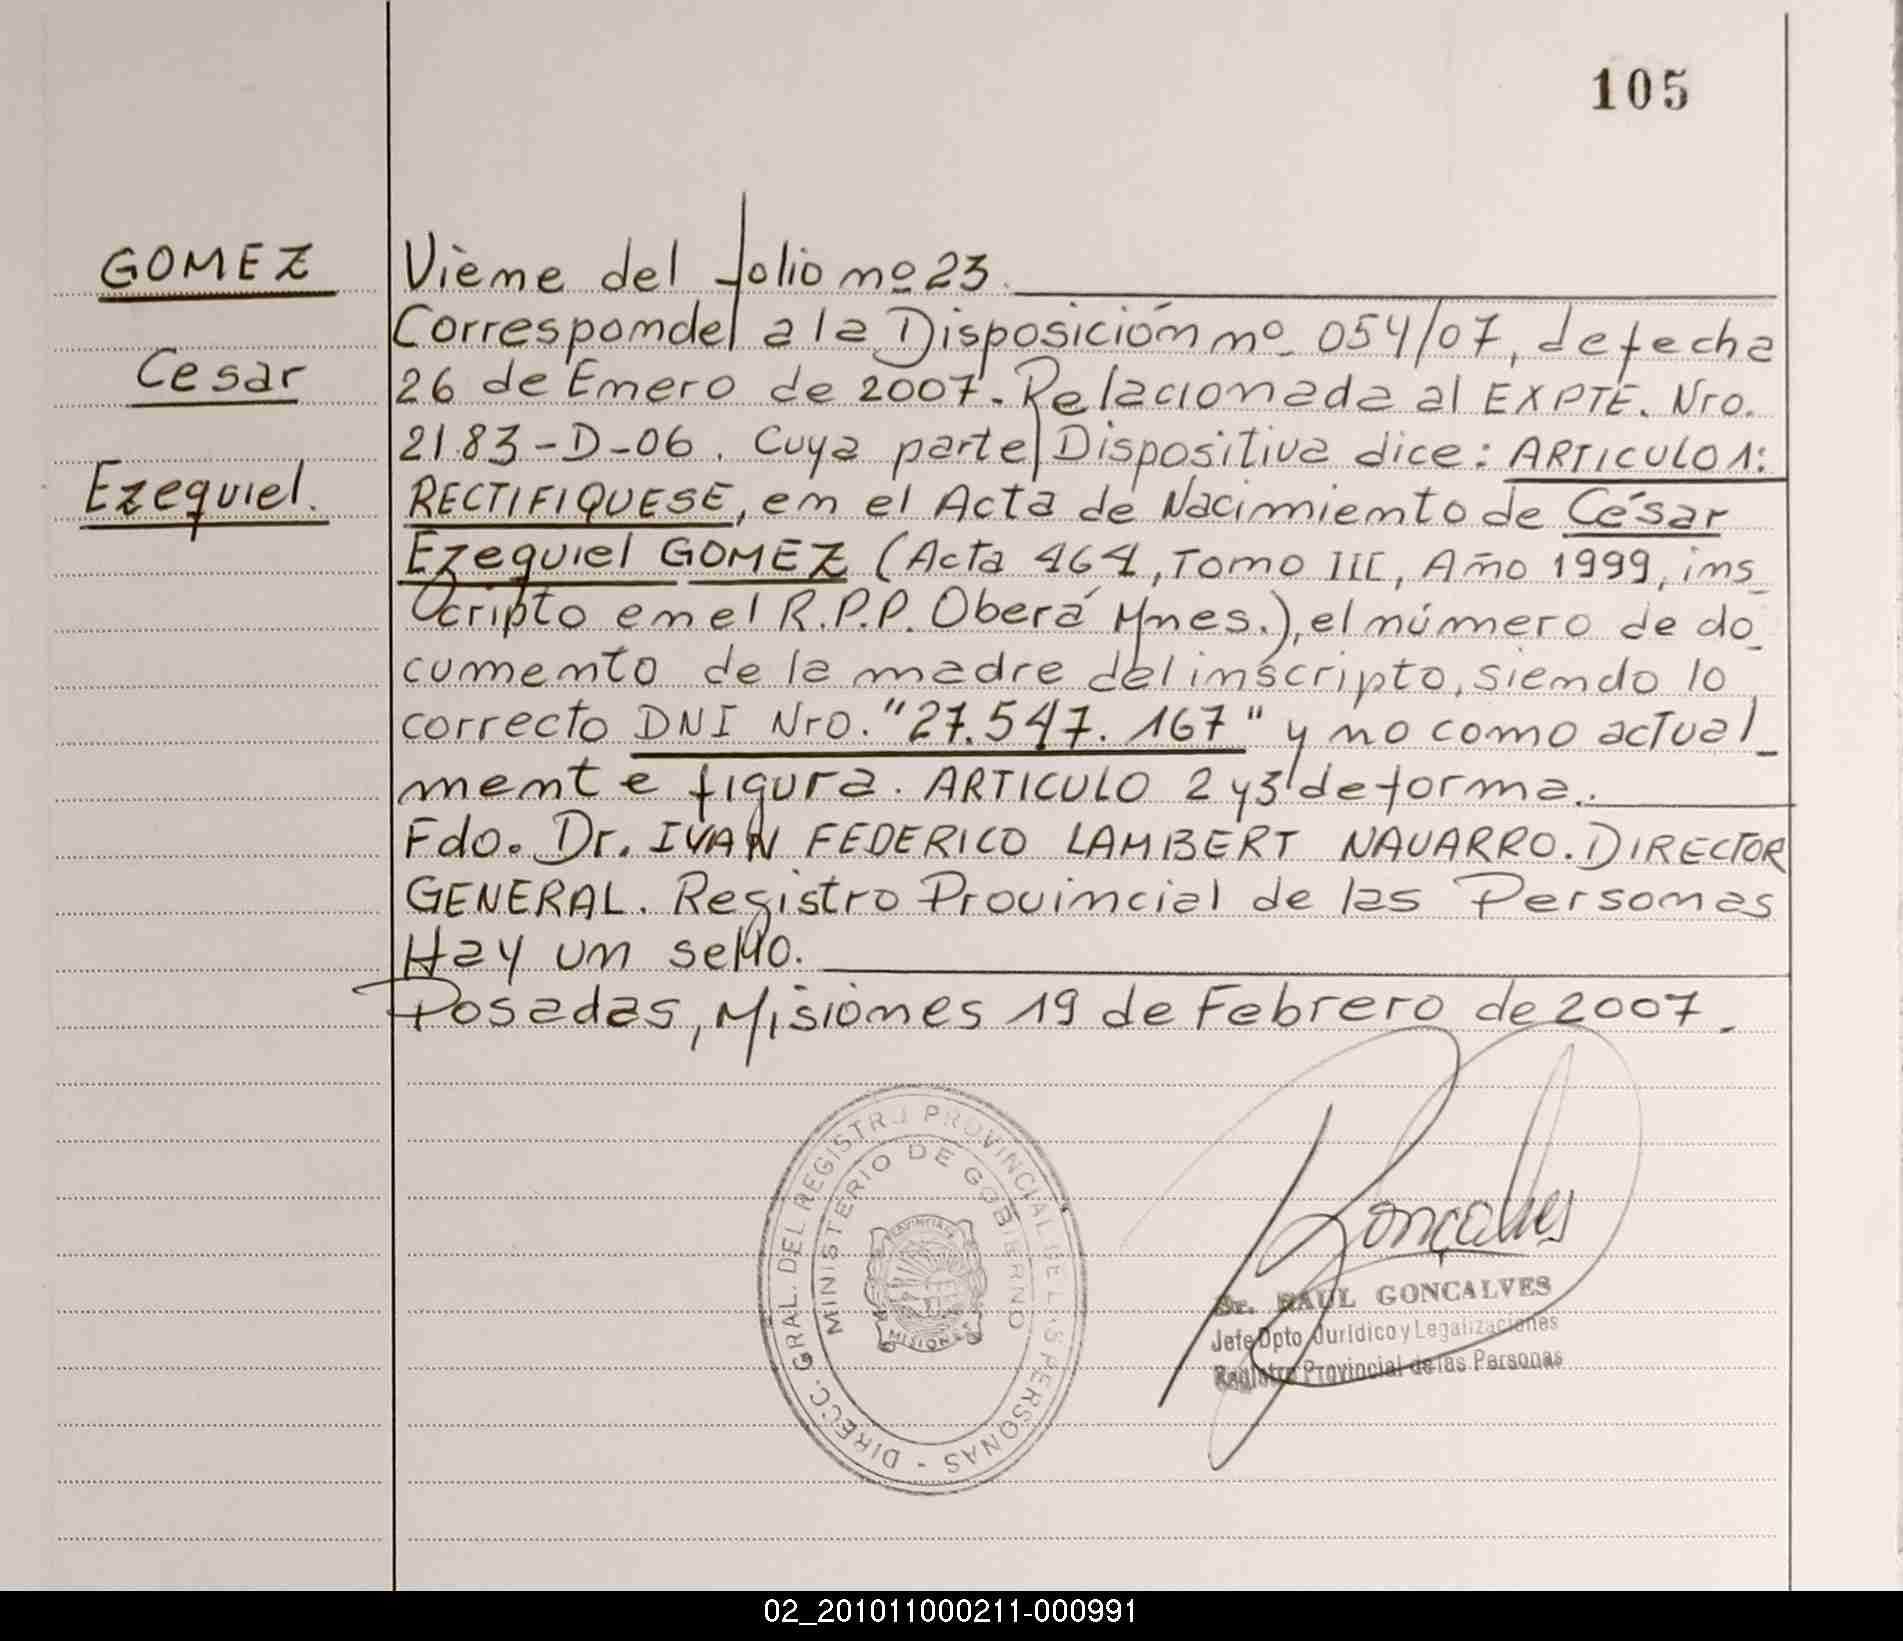 105
GOMEZ
Cesar
Ezequiel.
Viene del folio nº 23.
Corresponde a la Disposición nº 054/07, de fecha
26 de Enero de 2007. Relacionada al EXPTE. Nro.
2183-D-06. Cuya parte Dispositiva dice: ARTICULO 1:
RECTIFIQUESE, en el Acta de Nacimiento de César
Ezequiel GOMEZ (Acta 464, Tomo III, Año 1999, ins_
cripto en el R.P.P. Oberá Mnes.), el número de do_
cumento de la madre del inscripto, siendo lo
correcto DNI Nro. "27.547.167" y no como actual_
mente figura. ARTICULO 2 y 3 de forma.
Fdo. Dr. IVAN FEDERICO LAMBERT NAVARRO. DIRECTOR
GENERAL. Registro Provincial de las Personas
Hay un sello.
Posadas, Misiones 19 de Febrero de 2007.
DIRECC. GRAL. DEL REGISTRO PROVINCIAL DE LAS PERSONAS -
MINISTERIO DE GOBIERNO
PROVINCIA DE
MISIONES
Goncalves
Dr. RAUL GONCALVES
Jefe Dpto Jurídico y Legalizaciones
Registro Provincial de las Personas
02_201011000211-000991